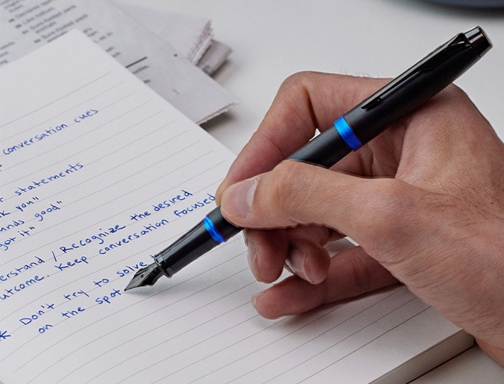 conversation cues
r statements
k you"
nds good"
got it"
erstand / Recognize the desired
utcome. Keep conversation focused
* Don't try to solve
on the spot